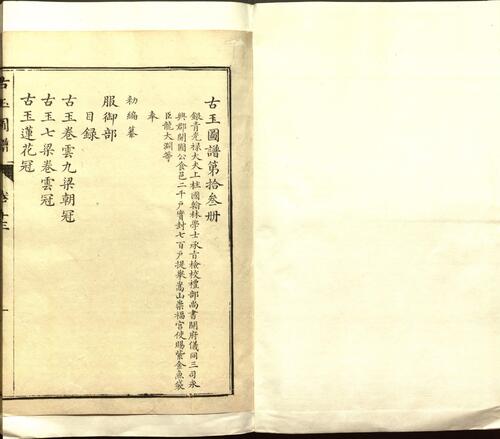 古玉圖譜第拾叁册
銀青光祿大夫上柱國翰林學士承旨檢校禮部尚書開府儀同三司永
興郡開國公食邑二千戶實封七百戶提舉嵩山崇福宮使賜紫金魚袋
臣龍大淵等
奉
勅編纂
服御部
目録
古玉卷雲九梁朝冠
古玉七梁卷雲冠
古玉蓮花冠
古玉圖譜